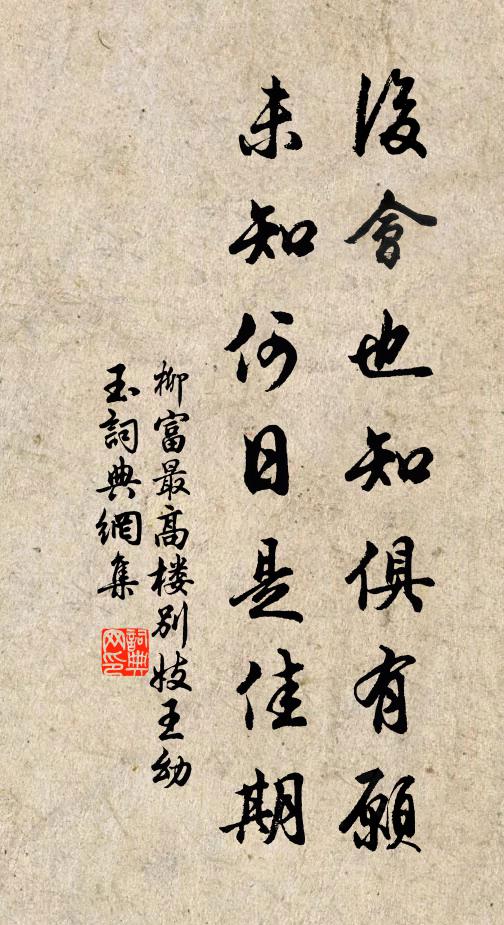 後會也知俱有願
未知何日是佳期
柳富最高楼別妓王幼
玉詞典網集
詞典
网印